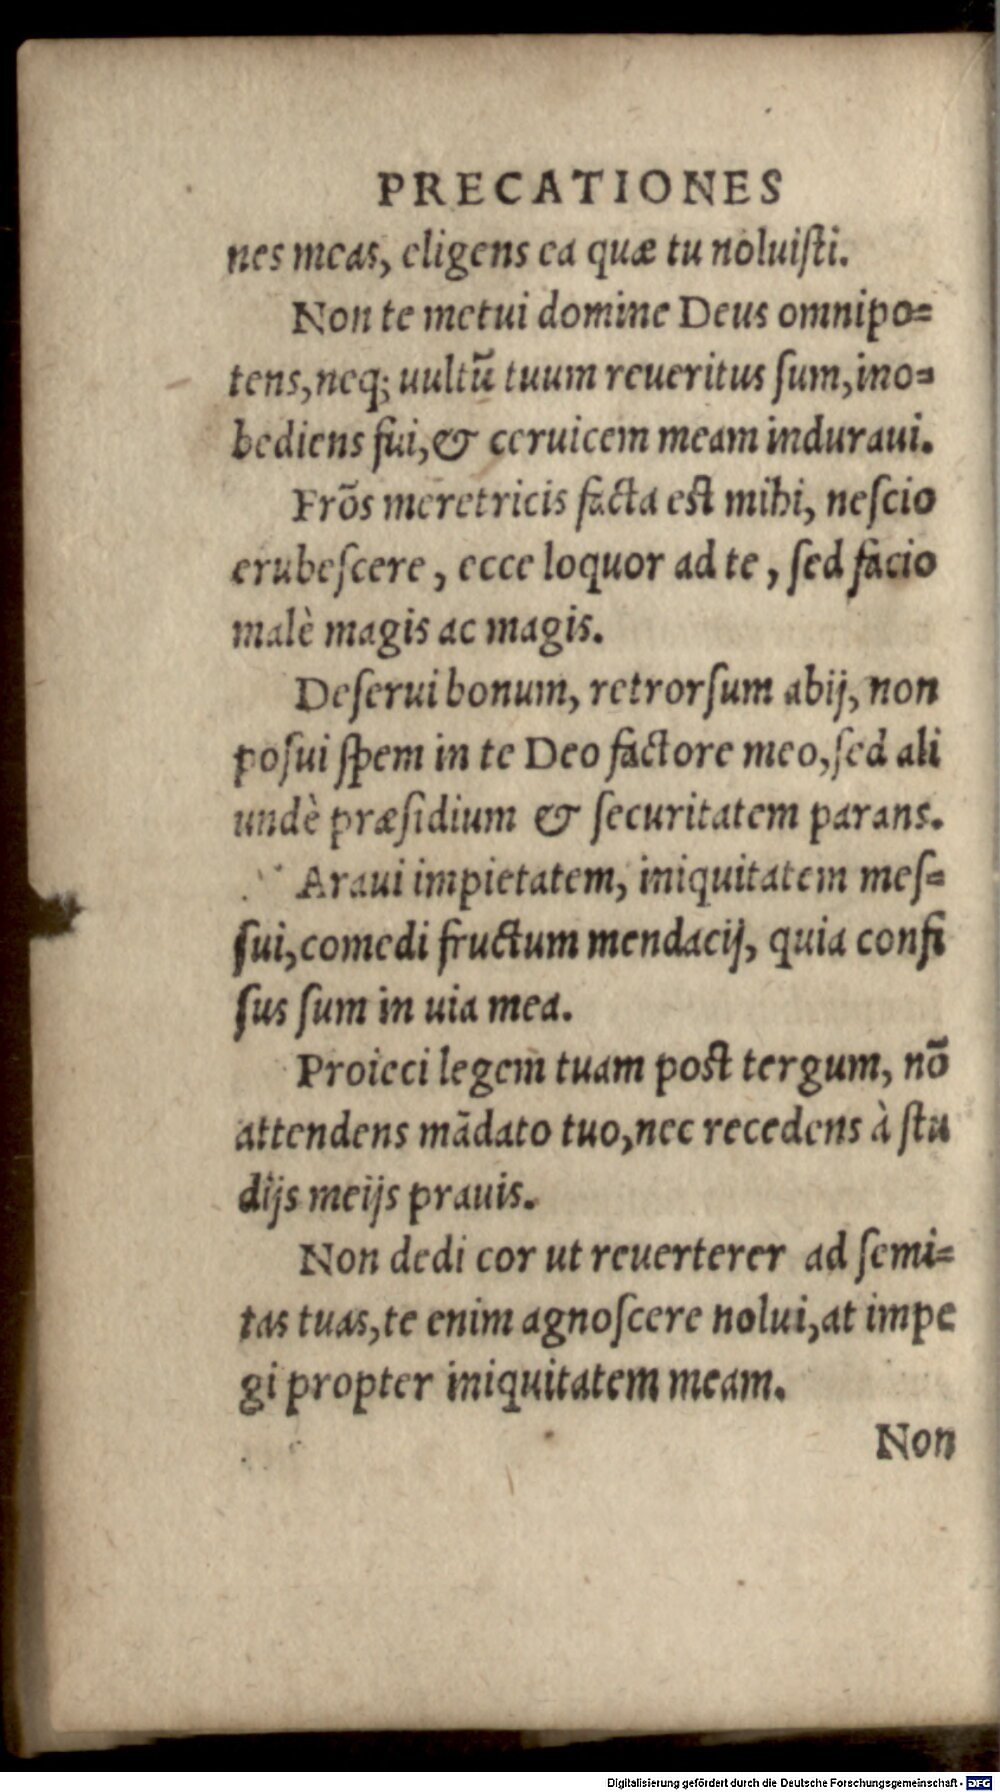 PRECATIONES
nes meas, eligens ea quæ tu noluiſti.
Non te metui domine Deus omnipo=
tens, neq; uultū tuum reueritus ſum, ino=
bediens fui, & ceruicem meam induraui.
Frõs meretricis facta est mihi, neſcio
erubeſcere, ecce loquor ad te, ſed facio
malè magis ac magis.
Deſerui bonum, retrorſum abij, non
poſui ſpem in te Deo factore meo, ſed ali
undè præſidium & ſecuritatem parans.
Araui impietatem, iniquitatem meſ=
ſui, comedi fructum mendacij, quia confi
ſus ſum in uia mea.
Proieci legem tuam post tergum, nõ
attendens mãdato tuo, nec recedens à ſtu
dijs meijs prauis.
Non dedi cor ut reuerterer ad ſemi=
tas tuas, te enim agnoſcere nolui, at impe
gi propter iniquitatem meam.
Non
Digitalisierung gefördert durch die Deutsche Forschungsgemeinschaft - DFG